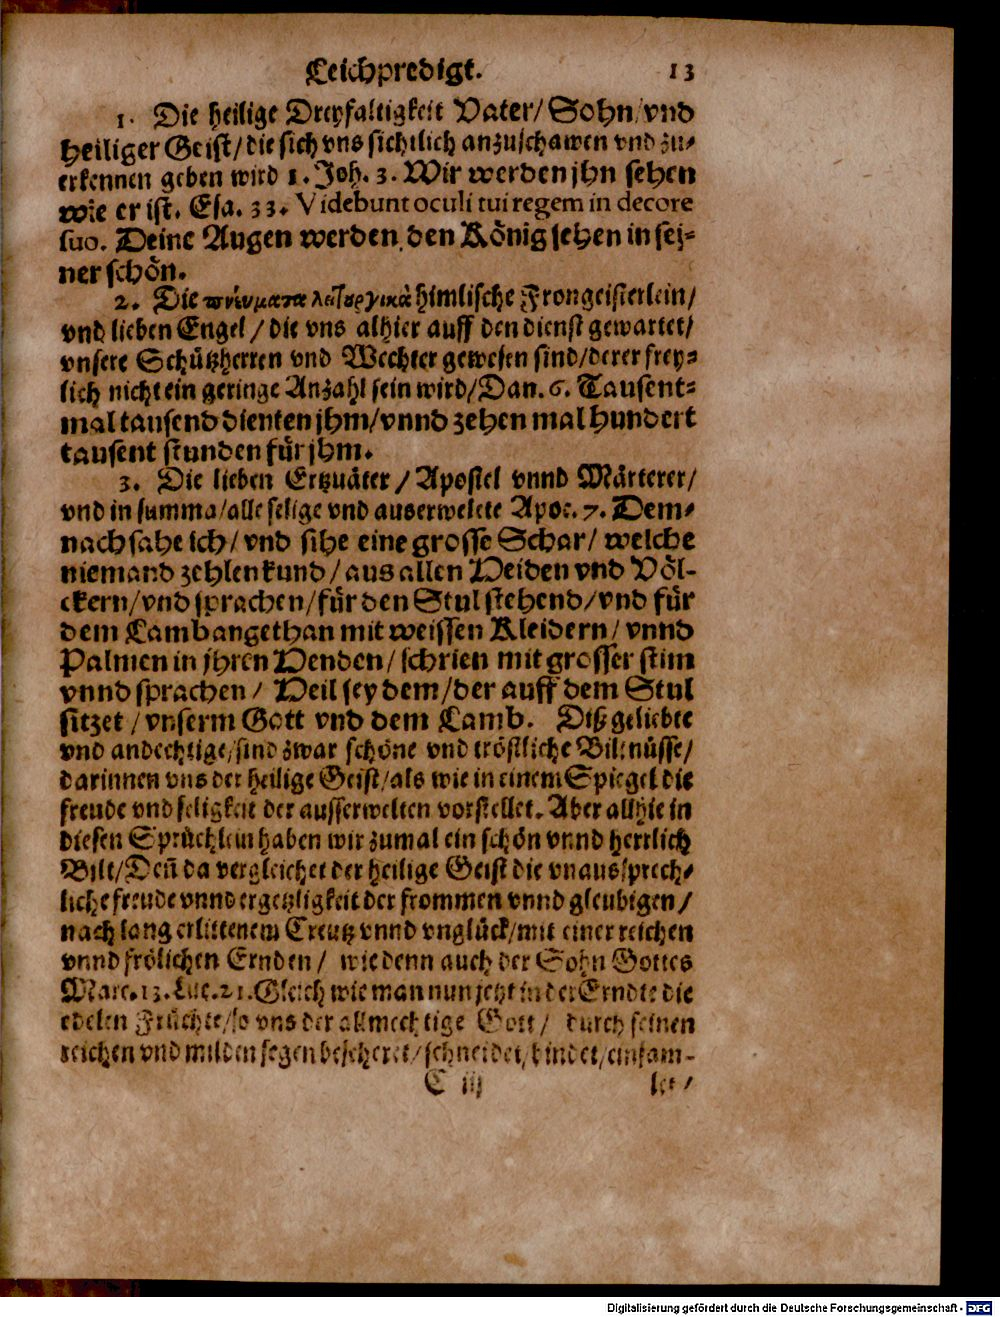 Leichpredigt. 13
1. Die heilige Dreyfaltigkeit Vater/ Sohn/ vnd
Heiliger Geist/ die sich vns sichtlich anzuschawen vnd zu-
erkennen geben wird 1. Joh. 3. Wir werden jhn sehen
wie er ist. Esa. 33. Videbunt oculi tui regem in decore
suo. Deine Augen werden den König sehen in sei-
ner schön.
2. Die πνεύματα λειτουργικὰ himlische Frongeisterlein/
vnd lieben Engel/ die vns alhier auff den dienst gewartet/
vnsere Schützherren vnd Wechter gewesen sind/ derer frey-
lich nicht ein geringe Anzahl sein wird/ Dan. 6. Tausent-
mal tausend dienten jhm/ vnnd zehen mal hundert
tausent stunden für jhm.
3. Die lieben Ertzuäter/ Apostel vnnd Märterer/
vnd in summa/ alle selige vnd auserwelete Apoc. 7. Dem-
nach sahe ich/ vnd sihe eine grosse Schar/ welche
niemand zehlen kund/ aus allen Heiden vnd Völ-
ckern/ vnd sprachen/ für den Stul stehend/ vnd für
dem Lamb angethan mit weissen Kleidern/ vnnd
Palmen in jhren Henden/ schrien mit grosser stim
vnnd sprachen/ Heil sey dem/ der auff dem Stul
sitzet/ vnserm Gott vnd dem Lamb. Diß geliebte
vnd andechtige/ sind zwar schöne vnd tröstliche Biltnüsse/
darinnen vns der heilige Geist/ als wie in einem Spiegel die
freude vnd seligkeit der ausserwelten vorstellet. Aber allhie in
diesen Sprüchlein haben wir zumal ein schön vnnd herrlich
Bilt/ Deñ da vergleichet der heilige Geist die vnaussprech-
liche freude vnnd ergetzligkeit der frommen vnnd gleubigen/
nach lang erlittenem Creutz vnnd vnglück/ mit einer reichen
vnnd frölichen Ernden/ wie denn auch der Sohn Gottes
Marc. 13. Luc. 21. Gleich wie man nun jetzt in der Erndte die
edelen Früchte/ so vns der allmechtige Gott/ durch seinen
reichen vnd milden segen bescheret/ schneidet/ bindet/ einsam-
C iij let/
Digitalisierung gefördert durch die Deutsche Forschungsgemeinschaft - DFG